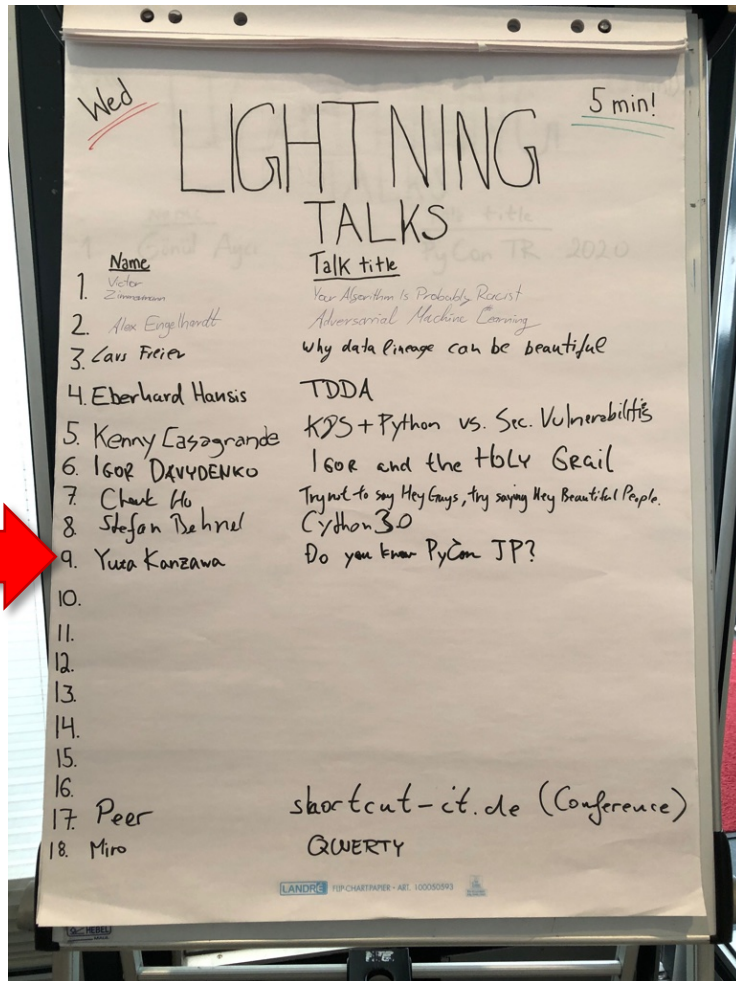 Wed
5 min!
LIGHTNING
TALKS
Name Talk title
1. Victor Zimmermann Your Algorithm Is Probably Racist
2. Alex Engelhardt Adversarial Machine Learning
3. Lars Freier Why data lineage can be beautiful
4. Eberhard Hansis TDDA
5. Kenny Casagrande KDS + Python vs. Sec. Vulnerabilitis
6. IGOR DAVYDENKO IGOR and the HOLY GRAIL
7. Cheuk Ho Try not to say Hey Guys, try saying Hey Beautiful People.
8. Stefan Behnel Cython 3.0
9. Yuta Kanzawa Do you know PyCon JP?
10.
11.
12.
13.
14.
15.
16.
17. Peer shortcut-it.de (Conference)
18. Miro QWERTY
LANDRÉ FLIP-CHARTPAPIER - ART. 100050593